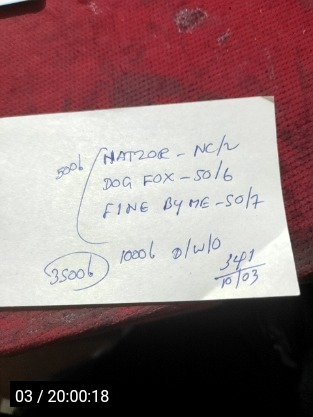 500b
HATZOR - NC/2
DOG FOX - SO/6
FINE BY ME - SO/7
1000b D/W/O
3500b
341
10/03
03 / 20:00:18